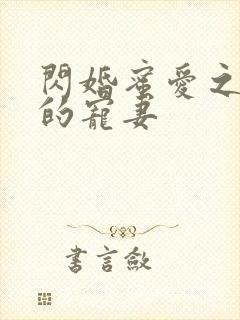 閃婚蜜愛之
的寵妻
書言斂